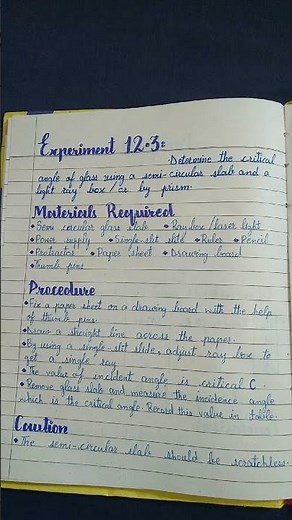 Experiment 12.3:
Determine the critical
angle of glass using a semi-circular slab and a
light ray box / or by prism.
Materials Required
• Semi circular glass slab • Ray box / laser light
• Power supply • Single-slit slite • Ruler • Pencil
• Protractor • Paper sheet • Drawing board
• Thumb pins
Procedure
• Fix a paper sheet on a drawing board with the help
of thumb pins.
• Draw a straight line across the paper.
• By using a single-slit slide, adjust ray box to
get a single ray
• The value of incident angle is critical C.
• Remove glass slab and measure the incidence angle
which is the critical angle. Record this value in table.
Caution
• The semi-circular slab should be scratchless.